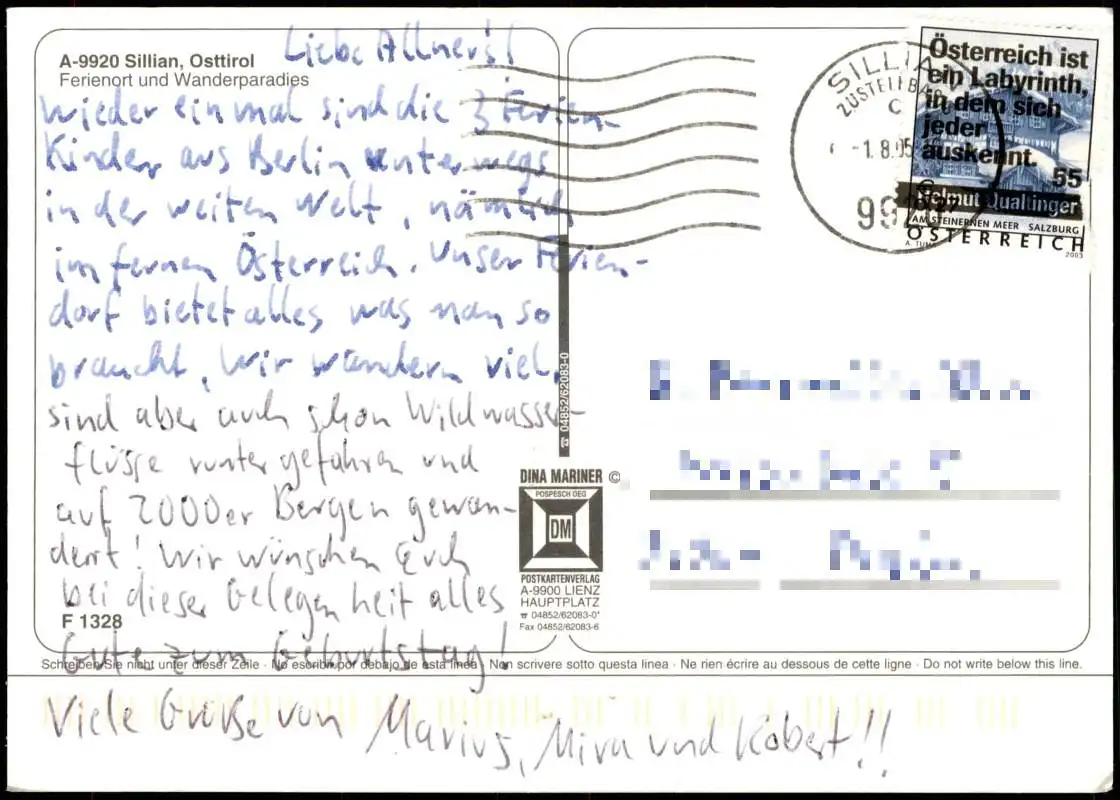 A-9920 Sillian, Osttirol
Ferienort und Wanderparadies
Liebe Allner's!
Wieder einmal sind die 3 Ferien-
Kinder aus Berlin unterwegs
in der weiten Welt, nämlich
im fernen Österreich. Unser Ferien-
dorf bietet alles was man so
braucht, Wir wandern viel,
sind aber auch schon Wildwasser-
flüsse runter gefahren und
auf 2000er Bergen gewan-
dert! Wir wünschen Euch
bei dieser Gelegenheit alles
F 1328
Gute zum Geburtstag!
Schreiben Sie nicht unter dieser Zeile · No escribir por debajo de esta linea · Non scrivere sotto questa linea · Ne rien écrire au dessous de cette ligne · Do not write below this line.
Viele Grüße von Marius, Mira und Robert!!
☎ 04852/62083-0
DINA MARINER ©
POSPESCH OEG
DM
POSTKARTENVERLAG
A-9900 LIENZ
HAUPTPLATZ
☎ 04852/62083-0*
Fax 04852/62083-6
SILLIA
ZUSTELLBA
C
-1.8.05
99
Österreich ist
ein Labyrinth,
in dem sich
jeder
auskennt.
55
Helmut Qualtinger
AM STEINERNEN MEER SALZBURG
ÖSTERREICH
2003